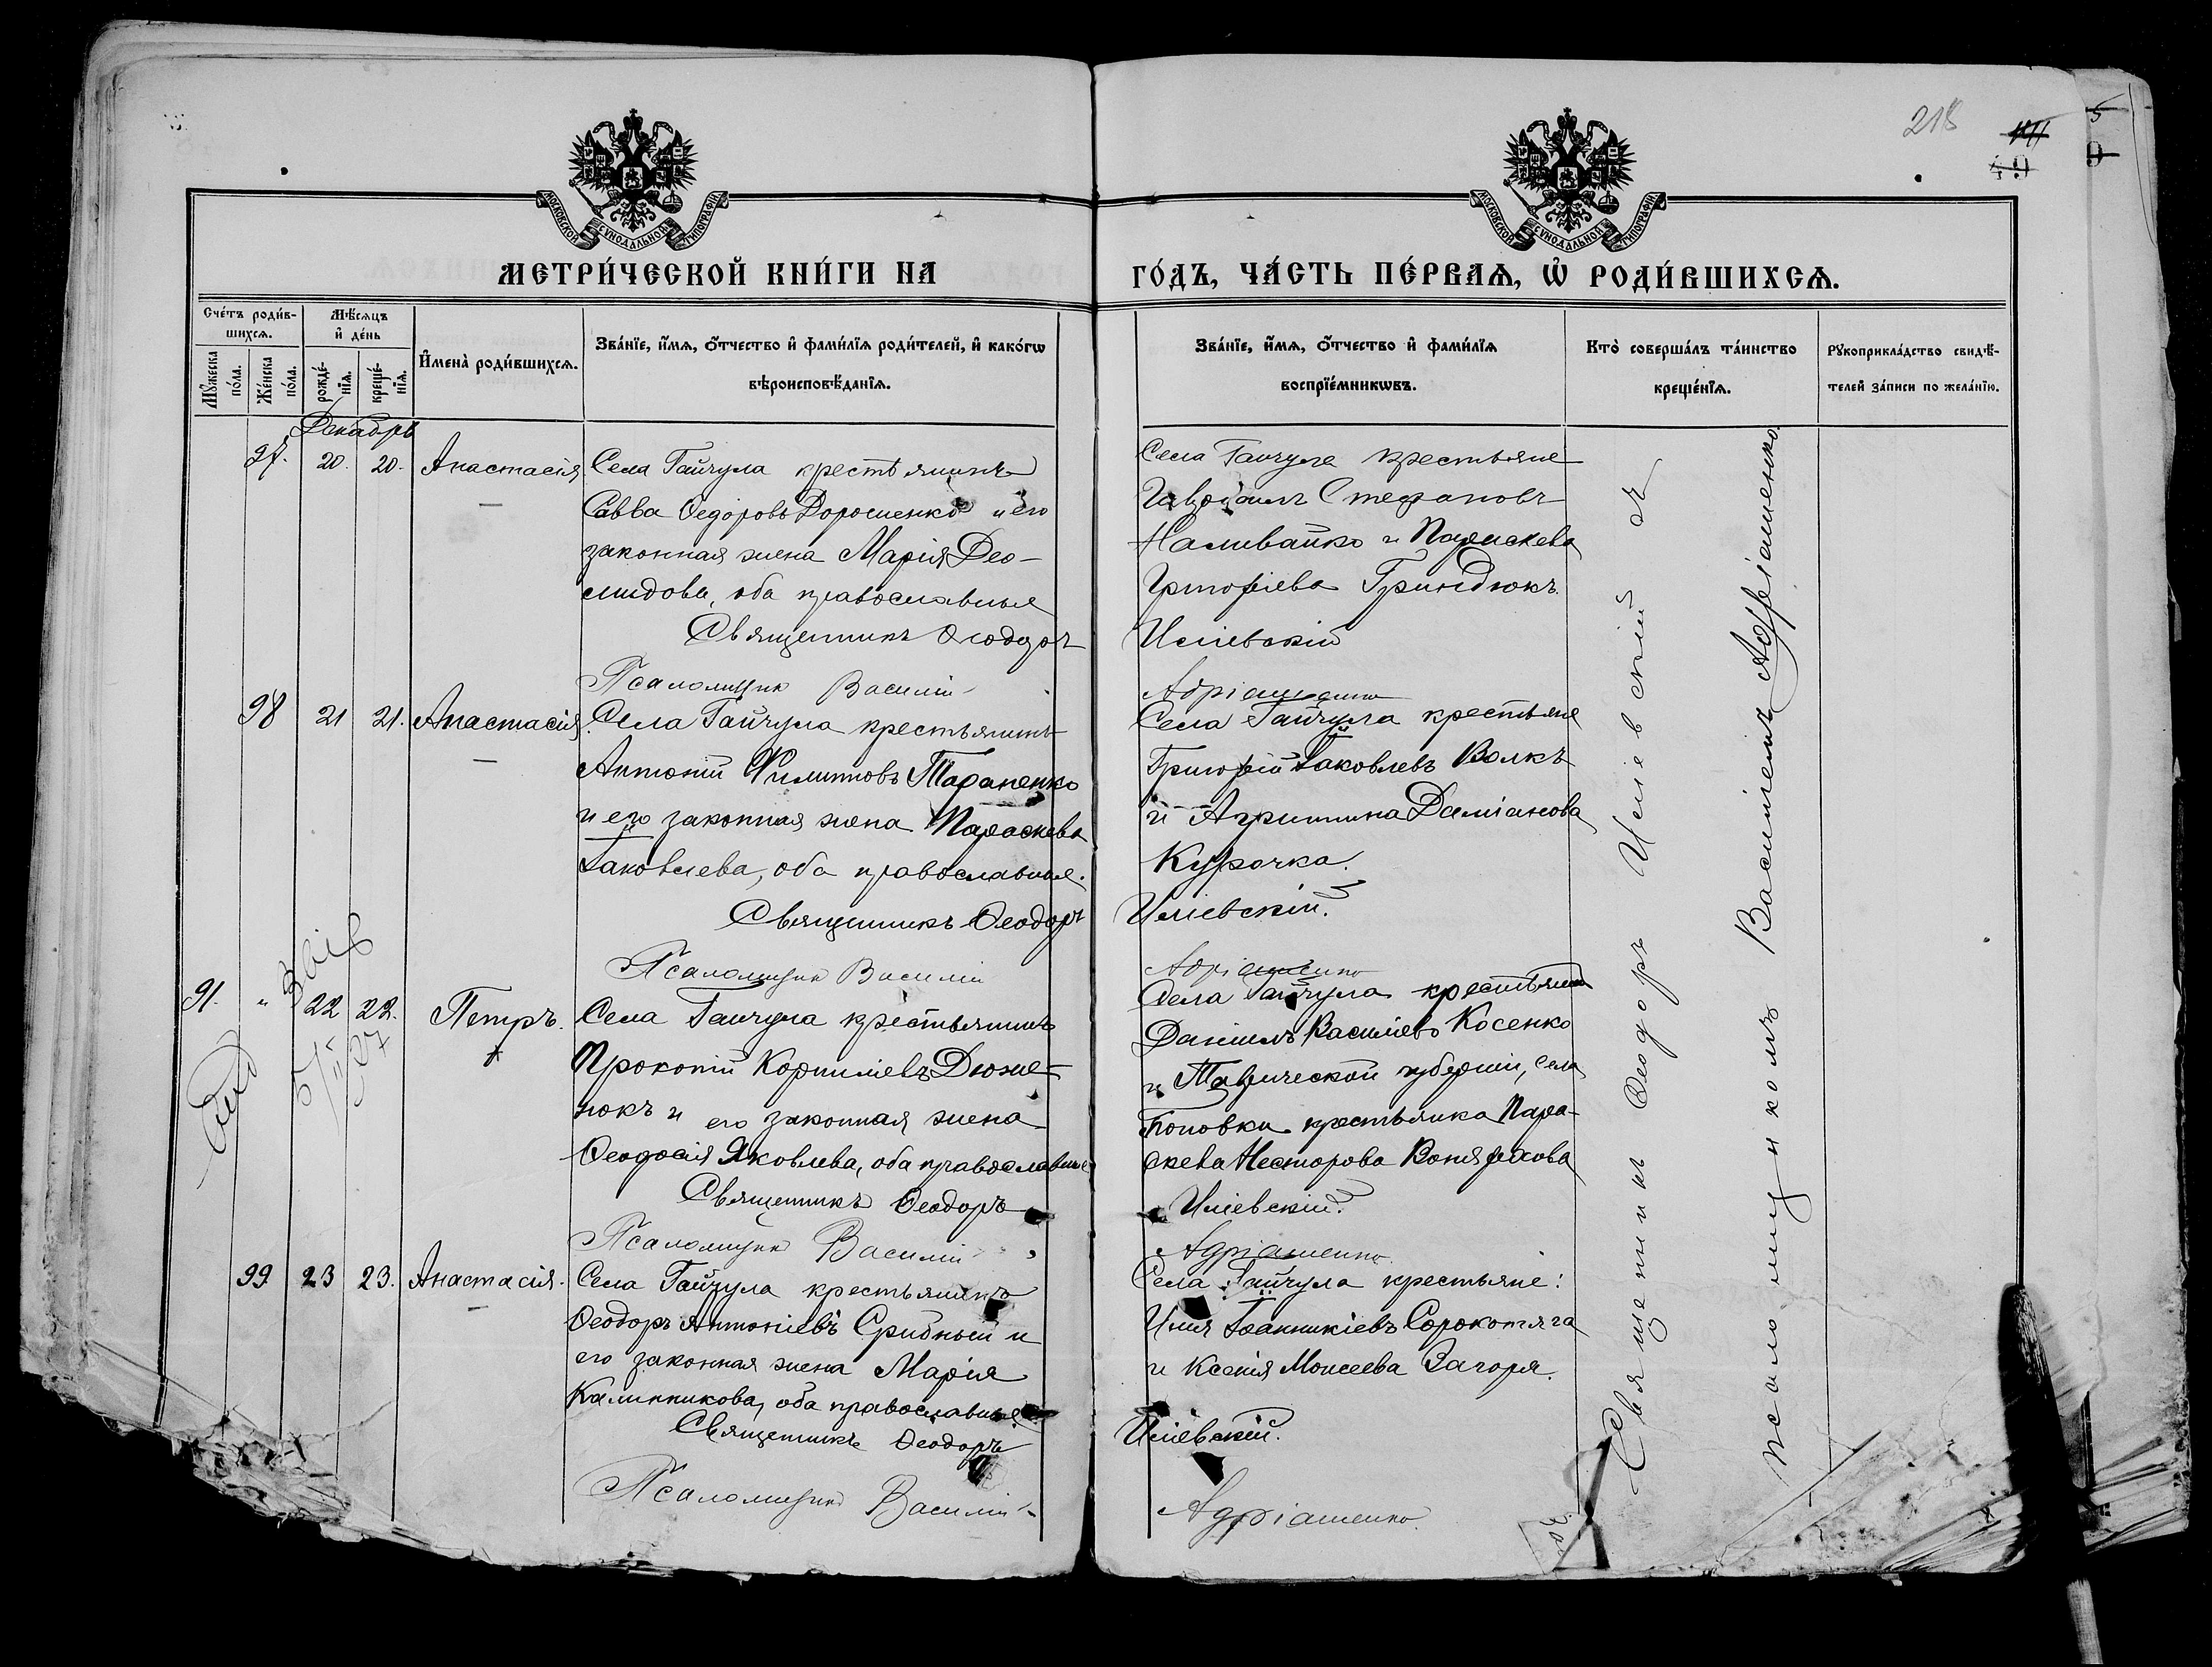 218
49
5
9
МОСКОВСКОЙ СУНОДАЛЬНОЙ ТИПОГРАФІИ
МОСКОВСКОЙ СУНОДАЛЬНОЙ ТИПОГРАФІИ
МЕТРИ́ЧЕСКОЙ КНИ́ГИ НА
ГО́ДЪ, ЧА́СТЬ ПЕ́РВАѦ, Ѡ҆ РОДИ́ВШИХСѦ.
Сче́тъ роди́в-
шихсѧ.
Мꙋжеска по́ла.
Же́нска по́ла.
Мѣ́сѧцъ
и҆ де́нь
рожде́-
нїѧ.
креще́-
нїѧ.
И҆мена̀ роди́вшихсѧ.
Зва́нїе, и҆́мѧ, ѻ҆́тчество и҆ фами́лїѧ роди́телей, и҆ како́гѡ
вѣроисповѣ́данїѧ.
Зва́нїе, и҆́мѧ, ѻ҆́тчество и҆ фами́лїѧ
воспрїе́мникѡвъ.
Кто̀ соверша́лъ та́инство
креще́нїѧ.
Рꙋкоприкла́дство свидѣ́-
телей за́писи по жела́нїю.
Декабрь
97. 20. 20. Анастасія
Села Гайчула крестьянинъ
Савва Ѳедоровъ Дорошенко и его
законная жена Марія Део-
мидова, оба православные
Священникъ Ѳеодоръ
Псаломщик Василій
Села Гайчула крестьяне
Гавріилъ Стефановъ
Наливайко и Параскева
Григоріева Гриндюкъ.
Иліевскій
Адріашенко
98 21 21. Анастасія
Села Гайчула крестьянинъ
Антоній Филипповъ Тараненко
и его законная жена Параскева
Іаковлева, оба православные.
Священникъ Ѳеодоръ
Псаломщик Василій
Села Гайчула крестьяне
Григорій Іаковлевъ Волкъ
и Агриппина Даміанова
Курочка.
Иліевскій.
Адріашенко
91. " 22 22. Петръ.
Села Гайчула крестьянинъ
Прокопій Корниліевъ Дюже-
нокъ и его законная жена
Ѳеодосія Яковлева, оба православные
Священникъ Ѳеодоръ
Псаломщик Василій
Села Гайчула крестьянин
Даніилъ Василіевъ Косенко
и Таврической губерніи, села
Поповки крестьянка Пара-
скева Несторова
Иліевскій.
Адріашенко
99. 23 23. Анастасія.
Села Гайчула крестьянинъ
Ѳеодоръ Антоніевъ Срибный и
его законная жена Марія
Калинникова, оба православные
Священникъ Ѳеодоръ
Псаломщик Василій
Села Гайчула крестьяне:
Илія Іоанникіевъ Сорокотяга
и Ксенія Моисеева Загоря.
Иліевскій.
Адріашенко.
Священникъ Ѳеодоръ Иліевскій съ
псаломщикомъ Василіемъ Адріашенко.